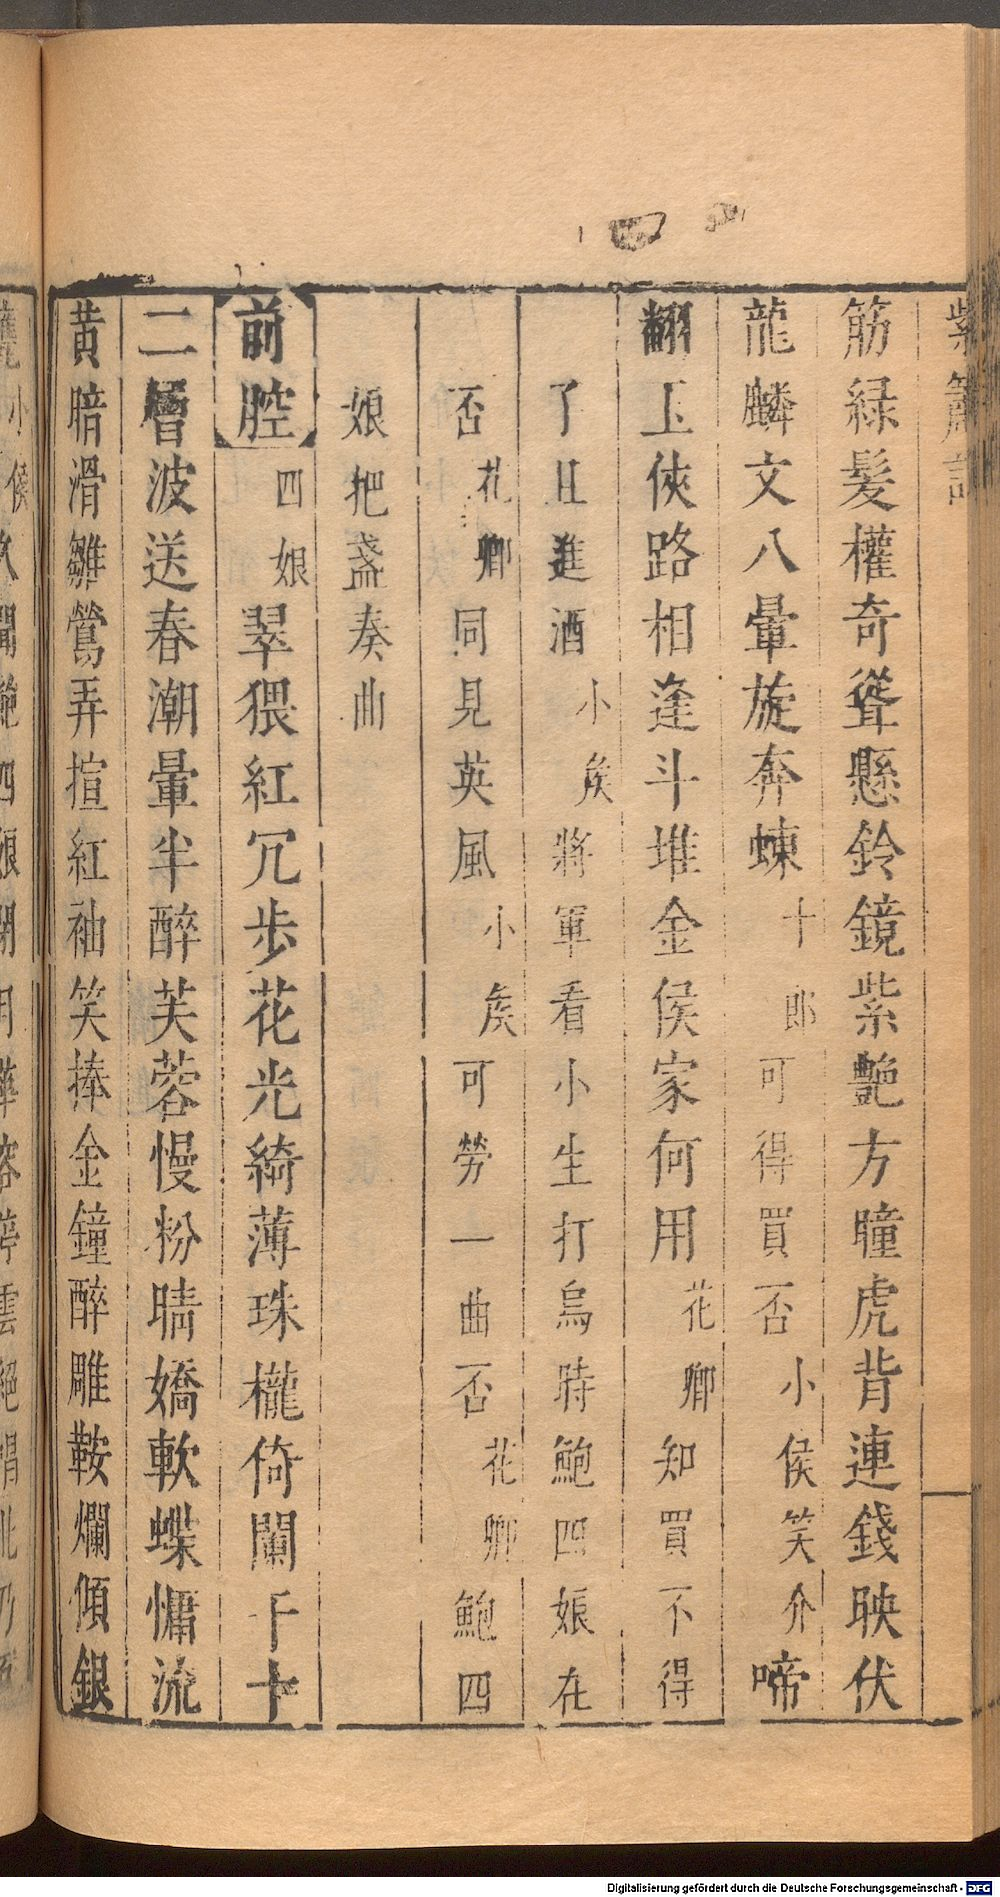 紫簫記
筋緑髪權奇聳懸鈴鏡紫艶方瞳虎背連錢映伏
龍麟文八暈旋奔蝀十郎可得買否小侯笑介啼
翻玉俠路相逢斗堆金侯家何用花卿知買不得
了且進酒小矦將軍看小生打烏時鮑四娘在
否花卿同見英風小矦可勞一曲否花卿鮑四
娘把盞奏曲
前腔四娘翠猥紅冗步花光綺薄珠櫳倚闌干十
二層波送春潮暈半醉芙蓉慢粉晴嬌軟蝶慵流
黄暗滑雛鶯弄揎紅袖笑捧金鐘醉雕鞍爛傾銀
Digitalisierung gefördert durch die Deutsche Forschungsgemeinschaft - DFG